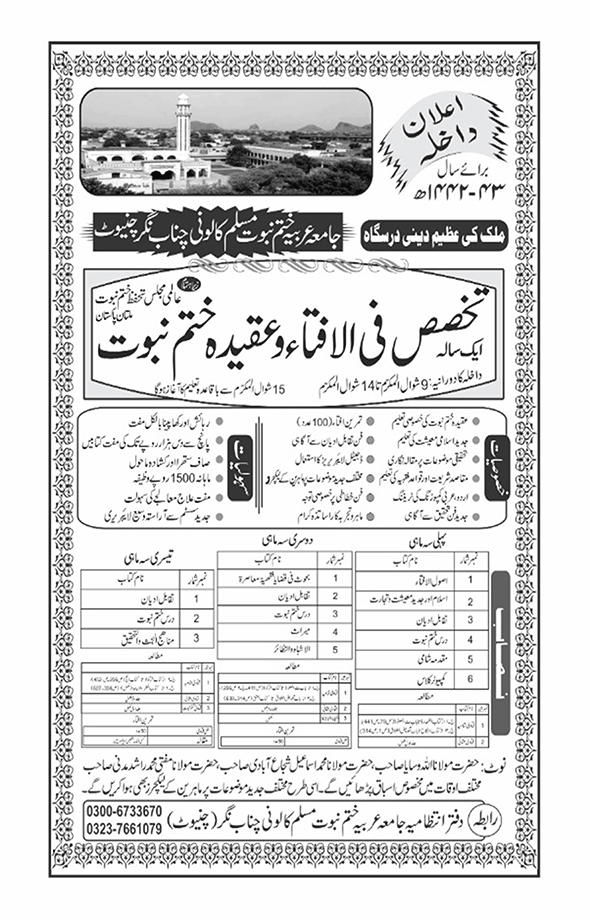 اعلان
داخلہ
برائے سال
۱۴۴۲-۴۳ھ
ملک کی عظیم دینی درسگاہ
جامعہ عربیہ ختم نبوت مسلم کالونی چناب نگر چنیوٹ
عالمی مجلس تحفظ ختم نبوت
ملتان پاکستان
ایک سالہ
تخصص فی الافتاء و عقیدہ ختم نبوت
داخلہ کا دورانیہ: 9 شوال المکرم تا 14 شوال المکرم
15 شوال المکرم سے باقاعدہ تعلیم کا آغاز ہوگا
خصوصیات
عقیدہ ختم نبوت کی خصوصی تعلیم
جدید اسلامی معیشت کی تعلیم
تحقیقی موضوعات پر مقالہ نگاری
مقاصد شریعت اور قواعد فقہیہ کی تعلیم
اردو، عربی کمپوزنگ کی ٹریننگ
جدید فن تحقیق سے آگاہی
تمرین افتاء (100 عدد)
فن تقابل ادیان سے آگاہی
ڈیجیٹل لائبریریز کا استعمال
مختلف جدید موضوعات پر ماہرین کے لیکچرز
فن خطاطی پر خصوصی توجہ
ماہر و تجربہ کار اساتذہ کرام
سہولیات
رہائش اور کھانا پینا بالکل مفت
پانچ سے دس ہزار روپے تک کی مفت کتابیں
صاف ستھرا اور کشادہ ماحول
ماہانہ 1500 روپے وظیفہ
مفت علاج معالجے کی سہولت
جدید سسٹم سے آراستہ وسیع لائبریری
نصاب
پہلی سہ ماہی
نمبر شمار نام کتاب
1 اصول الافتاء
2 اسلام اور جدید معیشت و تجارت
3 تقابل ادیان
4 درس ختم نبوت
5 مقدمہ شامی
6 کمپیوٹر کلاس
مطالعہ
دوسری سہ ماہی
نمبر شمار نام کتاب
1 بحوث فی قضایا فقہیۃ معاصرۃ
2 تقابل ادیان
3 درس ختم نبوت
4 میراث
5 الاشباہ والنظائر
مطالعہ
تمرین افتاء
تیسری سہ ماہی
نمبر شمار نام کتاب
1 تقابل ادیان
2 درس ختم نبوت
3 مناھج البحث والتحقیق
مطالعہ
تمرین افتاء
نوٹ: حضرت مولانا اللہ وسایا صاحب، حضرت مولانا محمد اسماعیل شجاع آبادی صاحب، حضرت مولانا مفتی محمد راشد مدنی صاحب
مختلف اوقات میں مخصوص اسباق پڑھائیں گے۔ اسی طرح مختلف جدید موضوعات پر ماہرین کے لیکچرز بھی ہوا کریں گے۔
رابطہ دفتر انتظامیہ جامعہ عربیہ ختم نبوت مسلم کالونی چناب نگر (چنیوٹ)
0300-6733670
0323-7661079